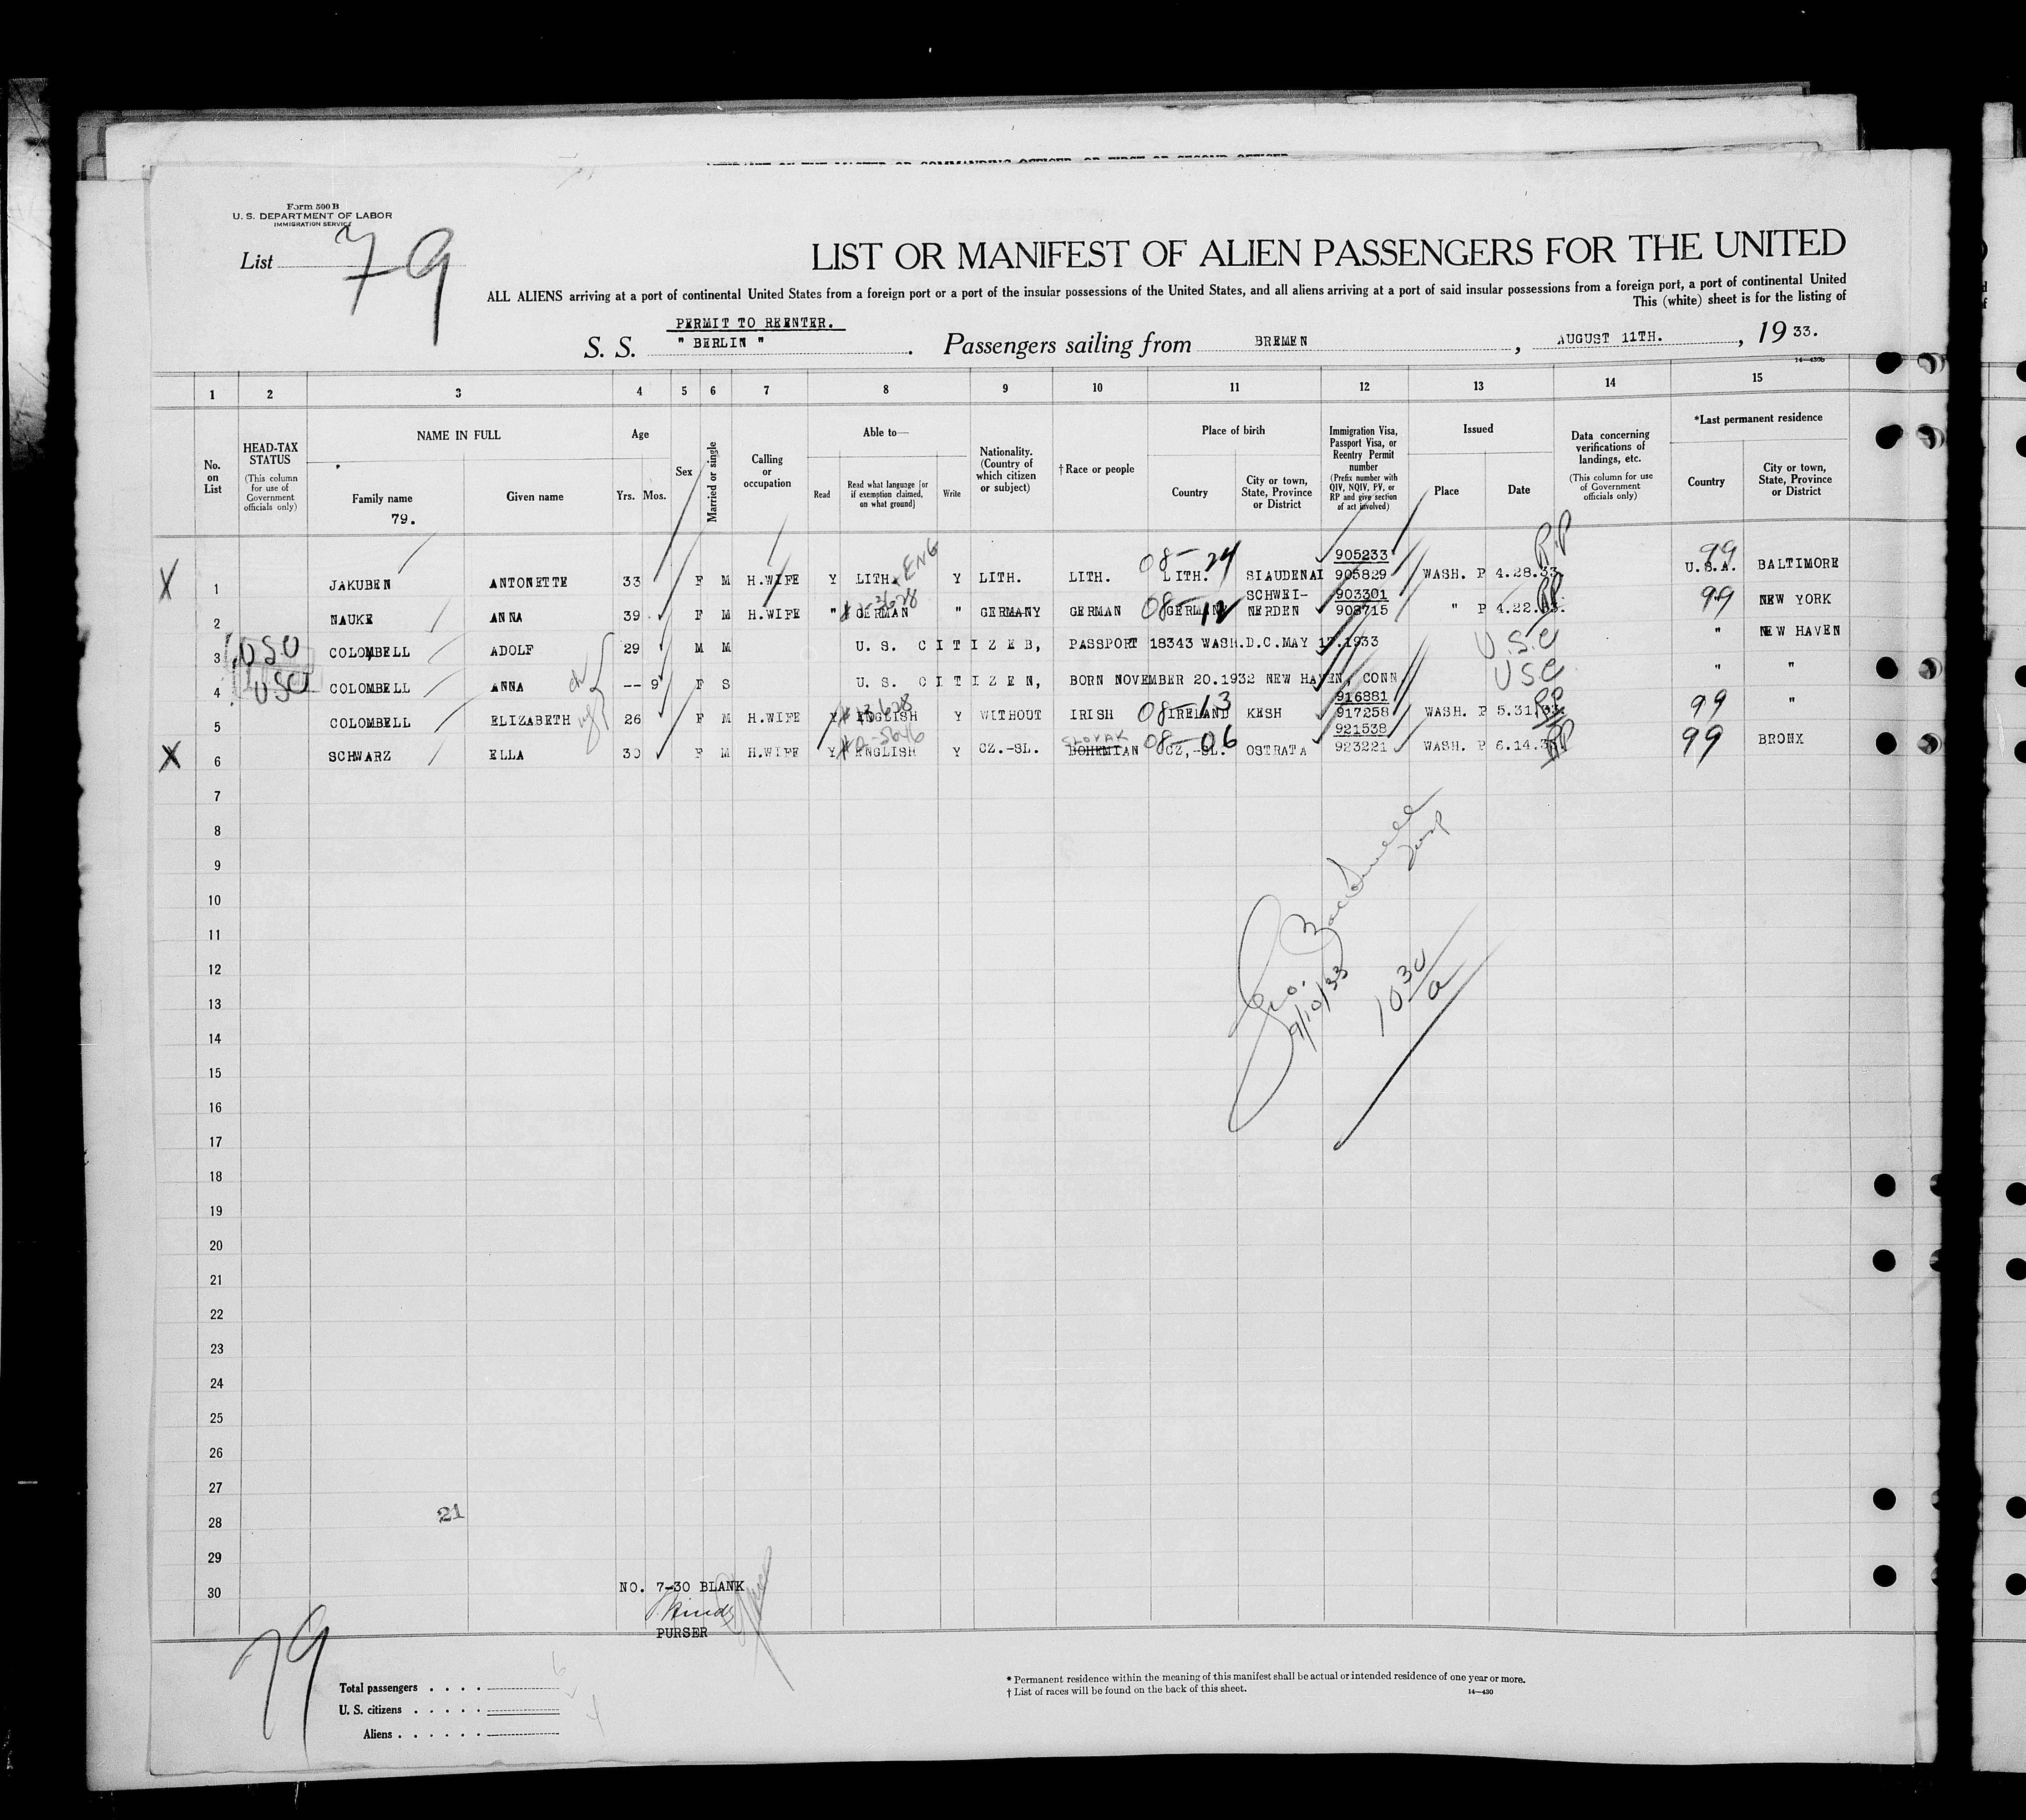 Form 500 B
U. S. DEPARTMENT OF LABOR
IMMIGRATION SERVICE
List 79
LIST OR MANIFEST OF ALIEN PASSENGERS FOR THE UNITED
ALL ALIENS arriving at a port of continental United States from a foreign port or a port of the insular possessions of the United States, and all aliens arriving at a port of said insular possessions from a foreign port, a port of continental United
This (white) sheet is for the listing of
PERMIT TO REENTER.
S. S. " BERLIN " . Passengers sailing from BREMEN , AUGUST 11TH. , 19 33.
14—430b
1 2 3 4 5 6 7 8 9 10 11 12 13 14 15
No. on List
HEAD-TAX STATUS
(This column for use of Government officials only)
NAME IN FULL
Family name
79.
Given name
Age
Yrs. Mos.
Sex
Married or single
Calling or occupation
Able to—
Read
Read what language [or if exemption claimed, on what ground]
Write
Nationality. (Country of which citizen or subject)
† Race or people
Place of birth
Country
City or town, State, Province or District
Immigration Visa, Passport Visa, or Reentry Permit number
(Prefix number with QIV, NQIV, PV, or RP and give section of act involved)
Issued
Place
Date
Data concerning verifications of landings, etc.
(This column for use of Government officials only)
*Last permanent residence
Country
City or town, State, Province or District
X 1 JAKUBEN ANTONETTE 33 F M H.WIFE Y LITH. ENG Y LITH. LITH. 08-24 LITH. SIAUDENAI 905233 905829 WASH. P 4.28.33. RP 99 U.S.A. BALTIMORE
2 NAUKE ANNA 39 F M H.WIFE " GERMAN " GERMANY GERMAN 08-12 GERMANY SCHWEI- NERDEN 903301 908715 " P 4.22.33. RP 99 NEW YORK
USC 3 COLOMBELL ADOLF 29 M M U. S. C I T I Z E B, PASSPORT 18343 WASH.D.C.MAY 17.1933 U.S.C " NEW HAVEN
USC 4 COLOMBELL ANNA -- 9 F S U. S. C I T I Z E N, BORN NOVEMBER 20.1932 NEW HAVEN, CONN. USC " "
5 COLOMBELL ELIZABETH 26 F M H.WIFE Y ENGLISH Y WITHOUT IRISH 08-13 IRELAND KESH 916881 917258 WASH. P 5.31.33. RP 99 "
X 6 SCHWARZ ELLA 30 F M H.WIFE Y ENGLISH Y CZ.-SL. SLOVAK BOHEMIAN 08-06 CZ,-SL. OSTRATA 921538 923221 WASH. P 6.14.33 RP 99 BRONX
7
8
9
10
11
12
13
14
15
16
17
18
19
20
21
22
23
24
25
26
27
28
29
30
Geo.
9/10/33
10 30/a
21
NO. 7-30 BLANK
PURSER
79
Total passengers . . . . 6
U. S. citizens . . . . .
Aliens . . . . . . 4
* Permanent residence within the meaning of this manifest shall be actual or intended residence of one year or more.
† List of races will be found on the back of this sheet.
14—430